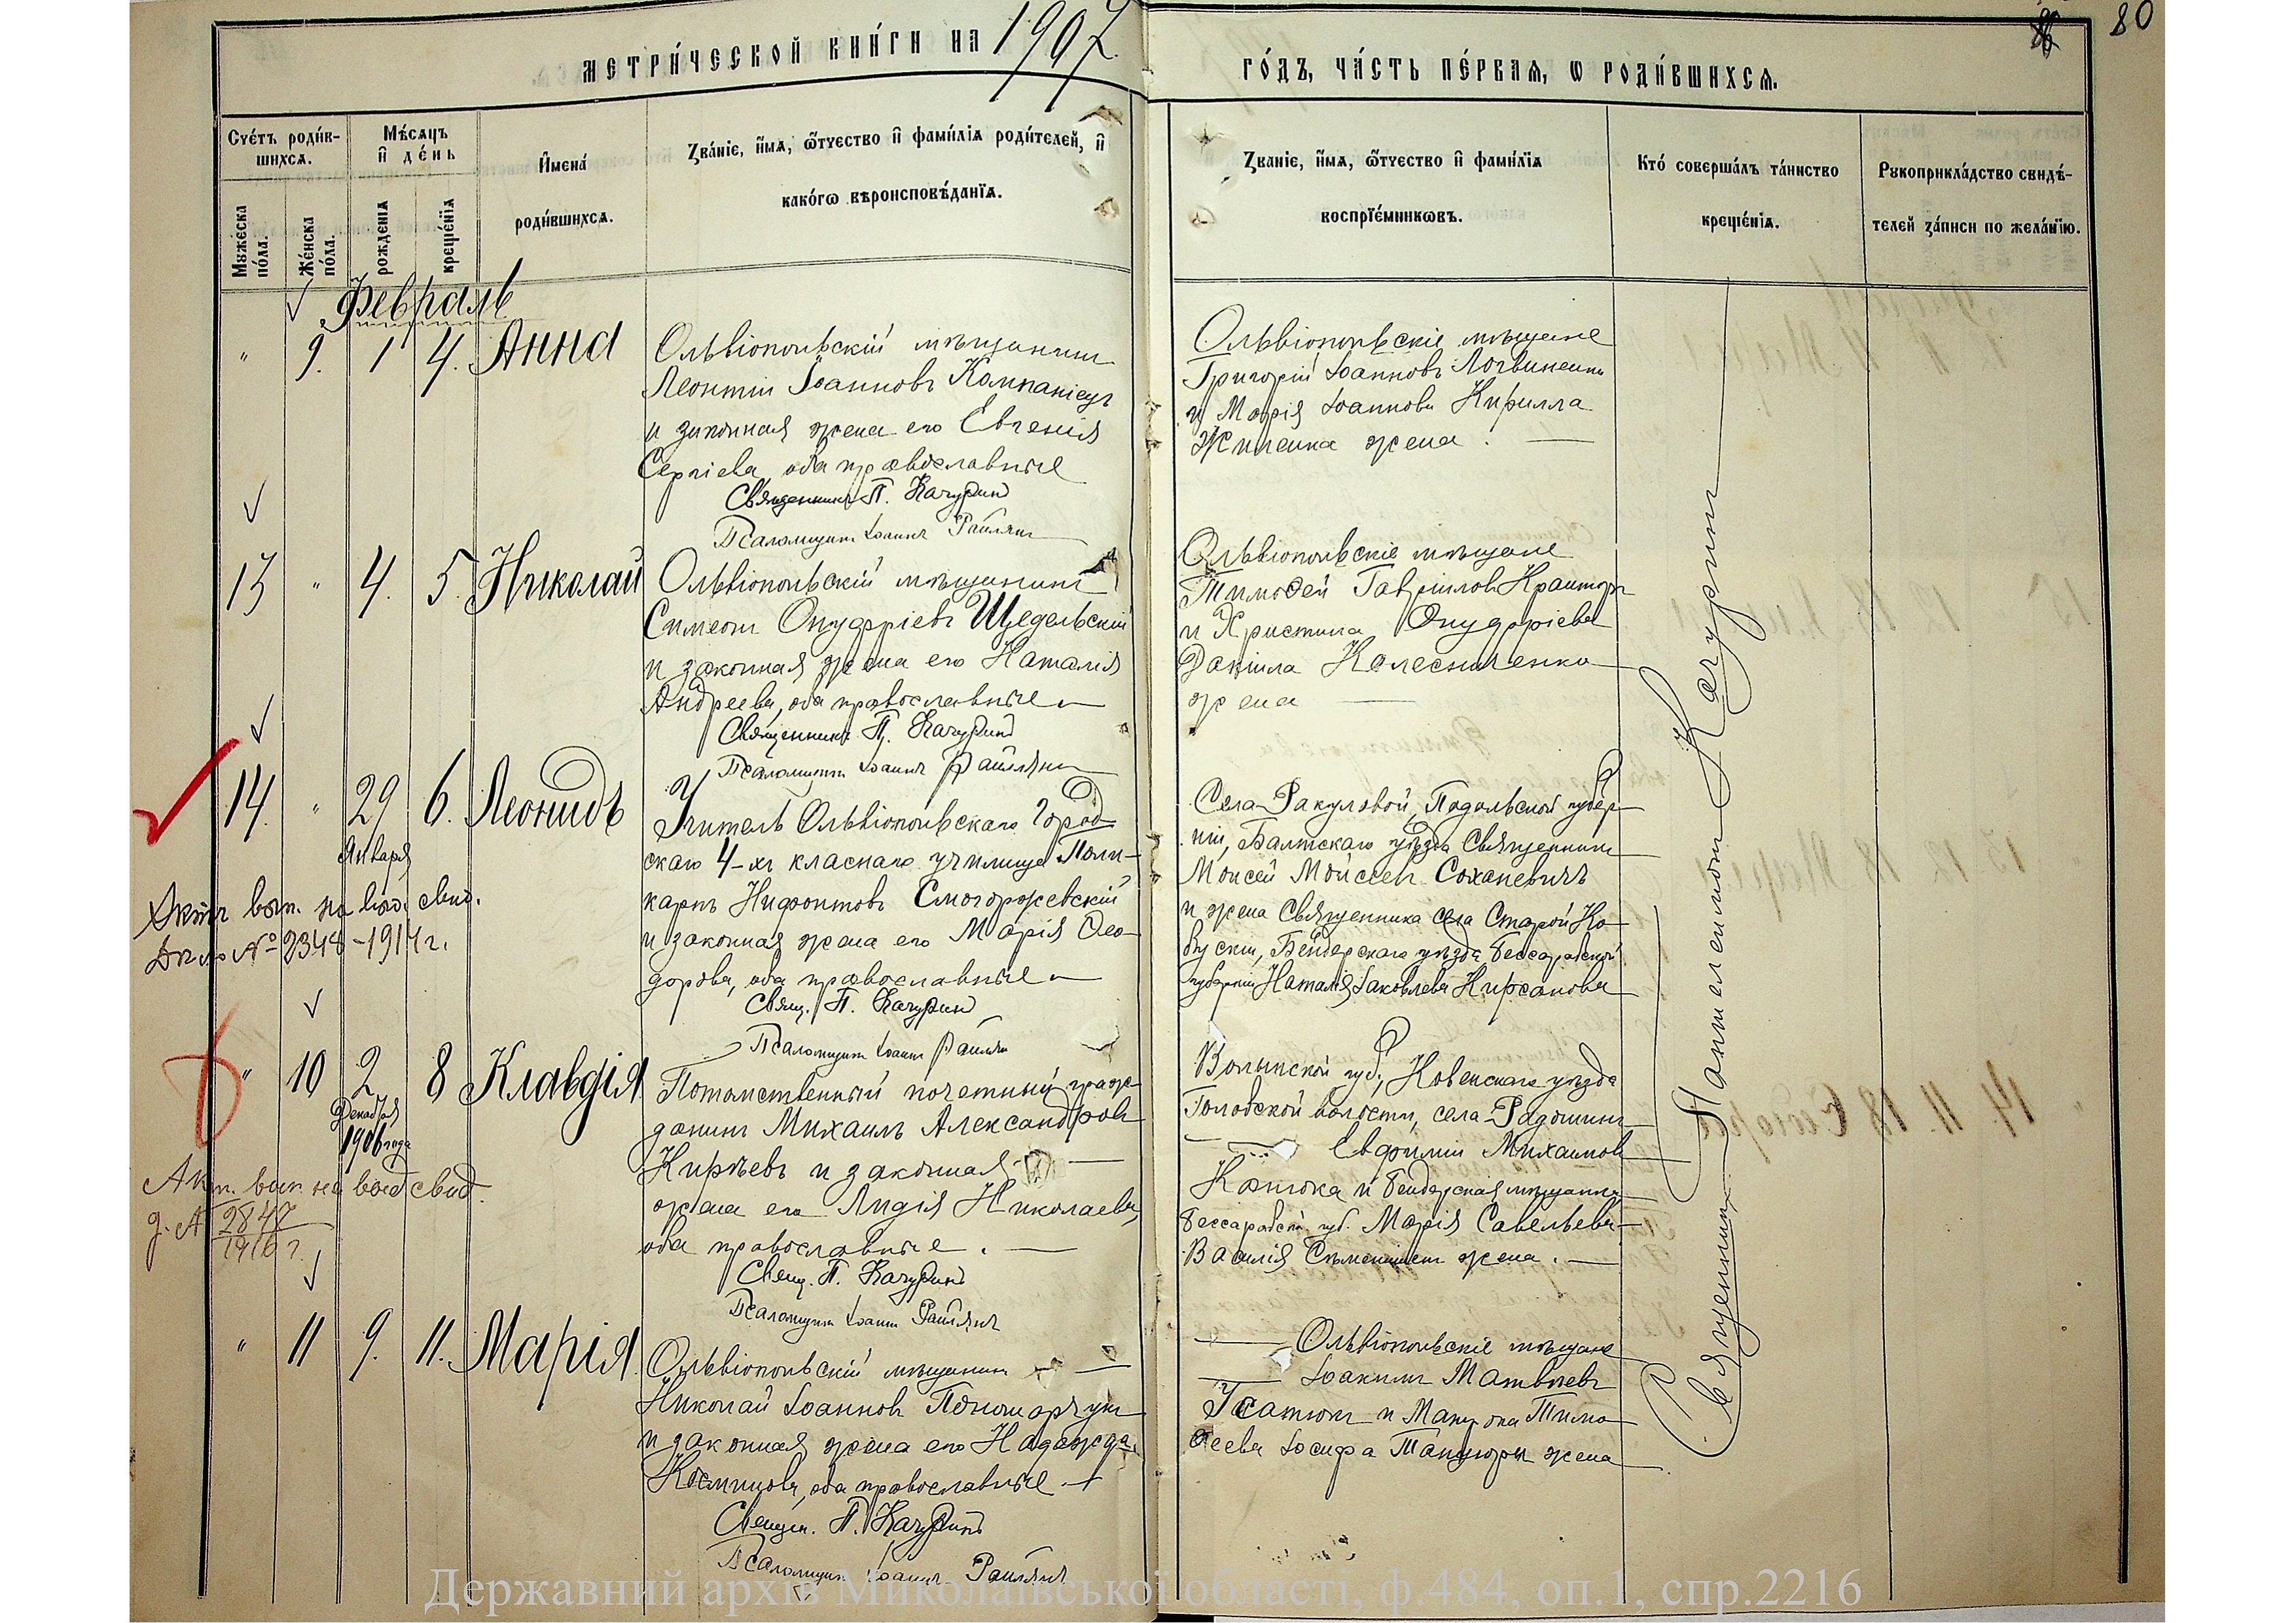 80
метри́ческой кни́ги на 1907
го́дъ, ча́сть пе́рваѧ, ѡ роди́вшихсѧ.
Сче́тъ роди́в-
шихсѧ.
Мѣ́сѧцъ
и҆ де́нь
И҆мена̀
роди́вшихсѧ.
Зва́нїе, и҆́мѧ, ѻ҆́тчество и҆ фами́лїѧ роди́телей, и҆
како́гѡ вѣроисповѣ́данїѧ.
Мꙋже́ска
по́ла.
Же́нска
по́ла.
рожденїѧ
креще́нїѧ
Званїе, и҆́мѧ, ѻ҆́тчество и҆ фами́лїѧ
воспрїе́мникѡвъ.
Кто̀ соверша́лъ та́инство
креще́нїѧ.
Рꙋкоприкла́дство свидѣ́-
телей за́писи по жела́нїю.
Февраль
" 9. 1 4. Анна
Ольвіопольскій мѣщанинъ
Леонтій Іоанновъ Компаніецъ
и законная жена его Евгенія
Сергіева, оба православные
Священникъ П. Качуринъ
Псаломщикъ Іоаннъ Райлянъ
Ольвіопольскіе мѣщане
Григорій Іоанновъ Логвиненко
и Марія Іоаннова Кирилла
жена.
13 " 4. 5. Николай
Ольвіопольскій мѣщанинъ
Симеонъ Онуфріевъ Щедельскій
и законная жена его Наталія
Андреева, оба православные
Священникъ П. Качуринъ
Псаломщикъ Іоаннъ Райлянъ
Ольвіопольскіе мѣщане
Тимофей Гавриловъ
и Христина Онуфріева
Даніила Колесниченко
жена
14. " 29 Января 6. Леонидъ
Учитель Ольвіопольскаго Город
скаго 4-хъ класнаго училища Поли-
карпъ Нифонтовъ Смогоржевскій
и законная жена его Марія Ѳео-
дорова, оба православные
Свящ. П. Качуринъ
Псаломщикъ Іоаннъ Райлянъ
Села Ракуловой, Подольской губер-
ніи, Балтскаго уѣзда Священникъ
Моисей Моисеев Соханевичъ
и жена Священника села Старой Ко-
буски, Бендерскаго уѣзда Бессарабской
губерніи Наталія Іаковлева Кирсанова
на воо. свид.
Дѣло № 2348 - 1914 г.
" 10 2 Декабря 1906 года 8 Клавдія
Потомственный почетный граж-
данинъ Михаилъ Александров
Кирѣевъ и законная
жена его Лидія Николаева,
оба православные.
Свящ. П. Качуринъ
Псаломщикъ Іоаннъ Райлянъ
Волынской губ., Ковенскаго уѣзда
волости, села
Евфимій Михаиловъ
и Бендерская мѣщанка
Бессарабской губ. Марія Савельева
Василія жена.
свид.
д. № 2847
1916 г.
" 11 9. 11. Марія
Ольвіопольскій мѣщанинъ
Николай Іоанновъ Пономарчукъ
и законная жена его Надежда
Косминова, оба православные
Священ. П. Качуринъ
Псаломщикъ Іоаннъ Райлянъ
Ольвіопольскіе мѣщане
Іоакимъ Матвѣевъ
и Матрона Тимо-
ѳеева Іосифа жена
Священникъ Пантелеимонъ Качуринъ
Державний архів Миколаївської області, ф.484, оп.1, спр.2216